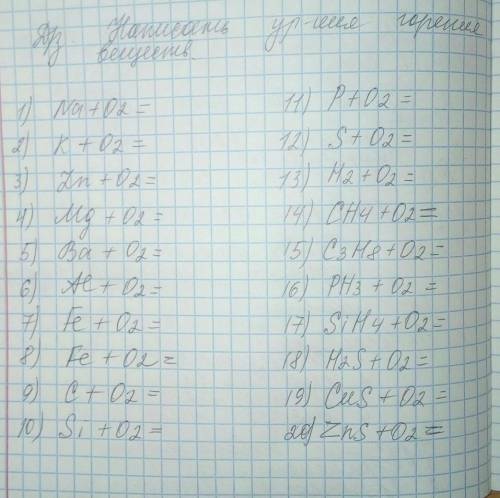 Дз. Написать ур-ния горения
веществ.
1) Na + O2 =
2) K + O2 =
3) Zn + O2 =
4) Mg + O2 =
5) Ba + O2 =
6) Al + O2 =
7) Fe + O2 =
8) Fe + O2 =
9) C + O2 =
10) Si + O2 =
11) P + O2 =
12) S + O2 =
13) H2 + O2 =
14) CH4 + O2 =
15) C3H8 + O2 =
16) PH3 + O2 =
17) SiH4 + O2 =
18) H2S + O2 =
19) CuS + O2 =
20) ZnS + O2 =